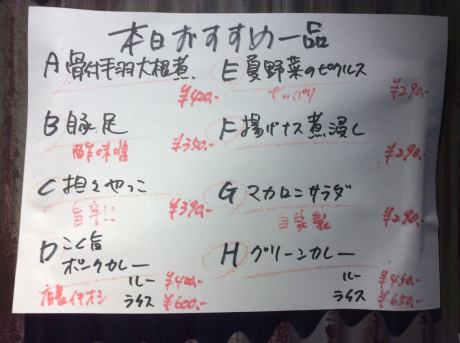 本日おすすめ一品
A 骨付手羽大根煮
¥420-
B 豚足
酢味噌
¥350-
C 担々やっこ
旨辛!!
¥390-
D こく旨
ポークカレー
ルー ¥400-
店長イチオシ ライス ¥600-
E 夏野菜のピクルス
サッパリ ¥290-
F 揚げナス煮浸し
¥290-
G マカロニサラダ
自家製 ¥290-
H グリーンカレー
ルー ¥450-
ライス ¥650-